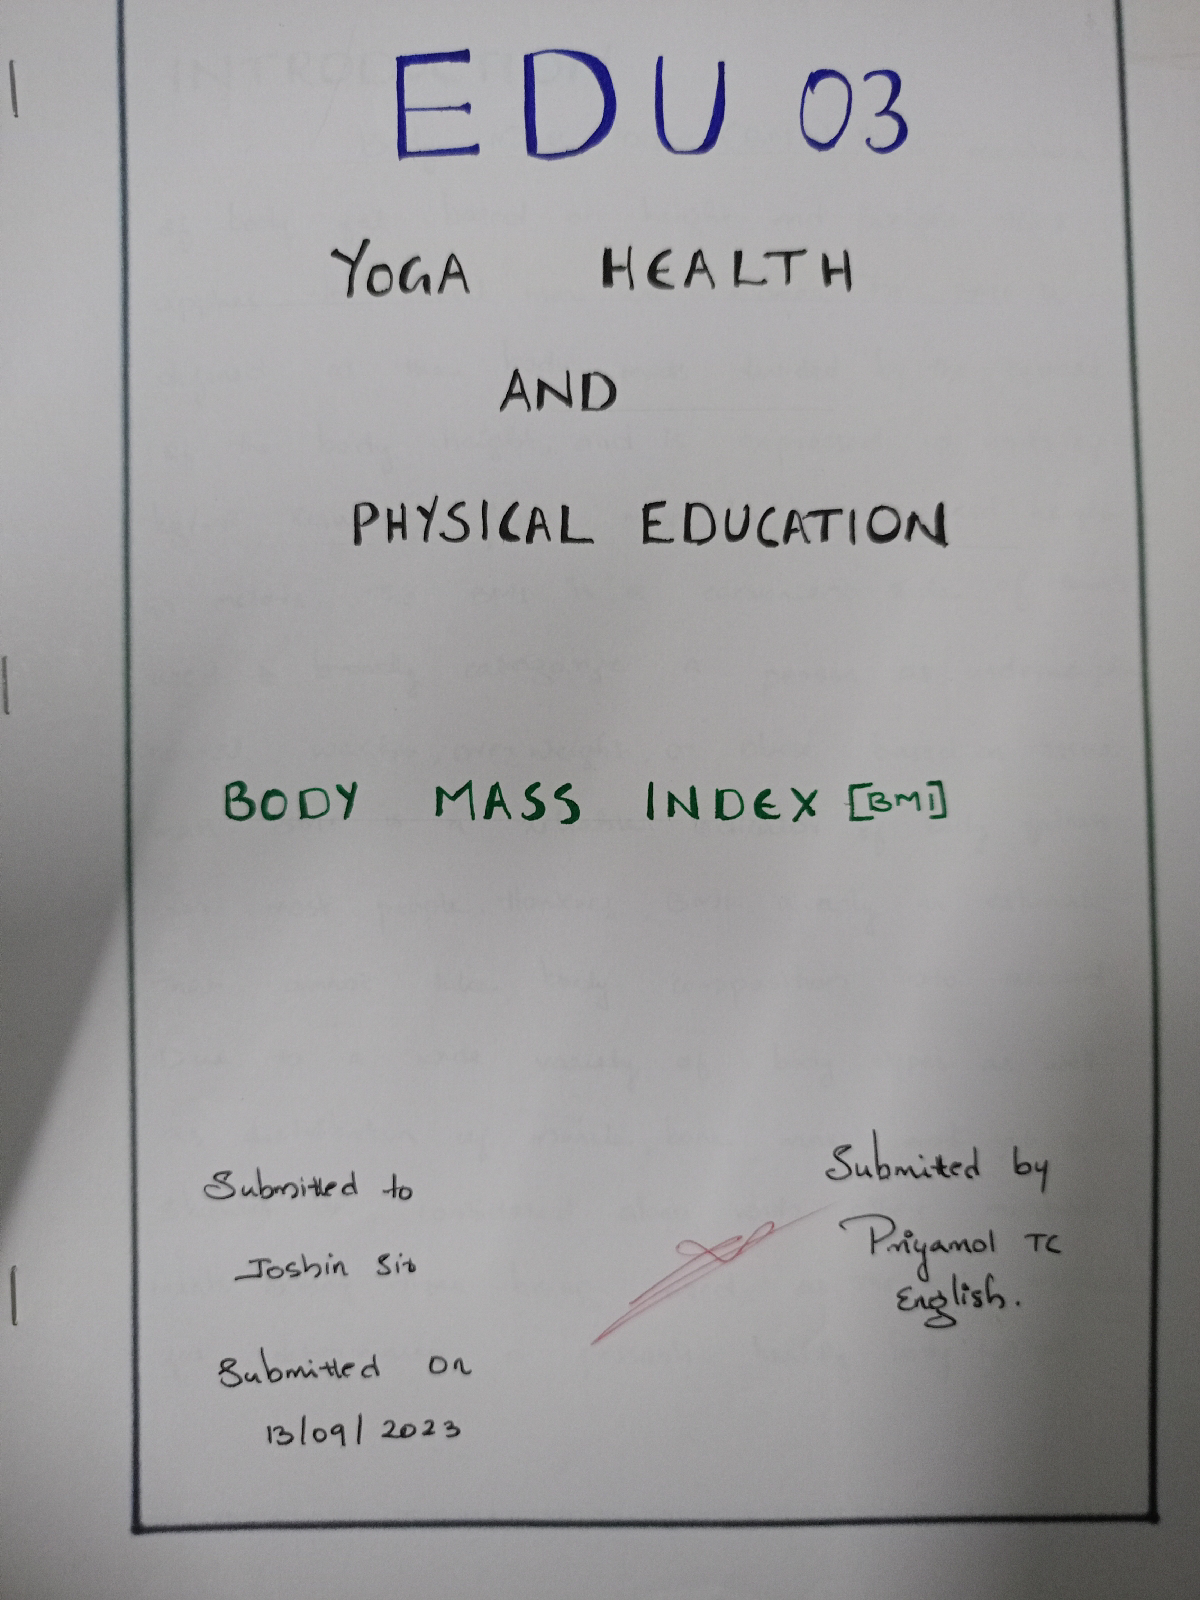 EDU 03
YOGA HEALTH
AND
PHYSICAL EDUCATION
BODY MASS INDEX [BMI]
Submitted to
Joshin Sir
Submitted On
13/09/2023
Submitted by
Priyamol TC
English.